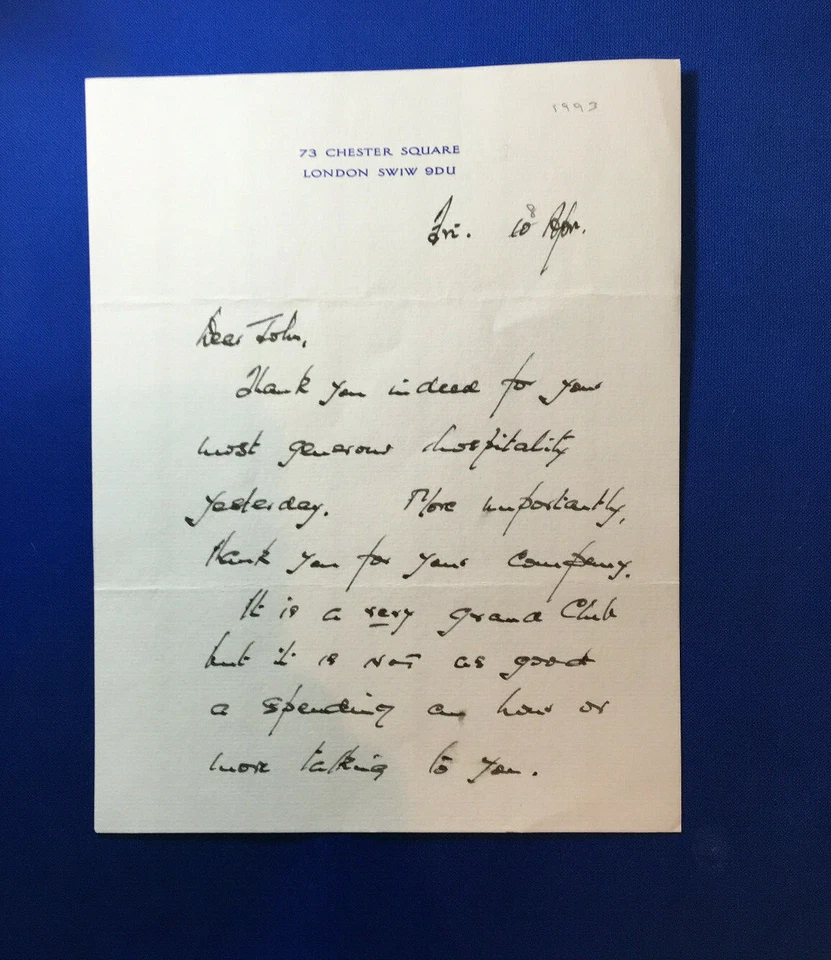 1993
73 CHESTER SQUARE
LONDON SW1W 9DU
Fri. 10 8 Apr.
Dear John,
Thank you indeed for your
most generous hospitality
yesterday. More importantly,
thank you for your company.
It is a very grand Club
but it is not as good
a spending an hour or
more talking to you.